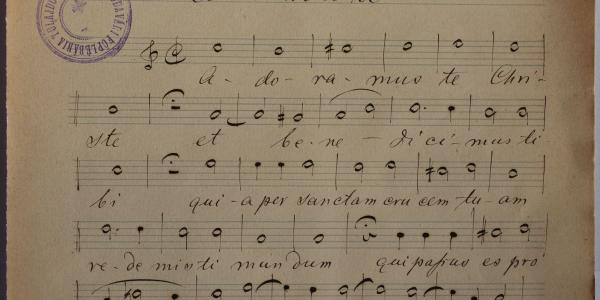 A-do-ra-mus te Chri-
ste et be-ne-di ci-mus ti
bi qui-a per sanctam cru cem tu-am
re-de mis ti mundum qui passus es pro